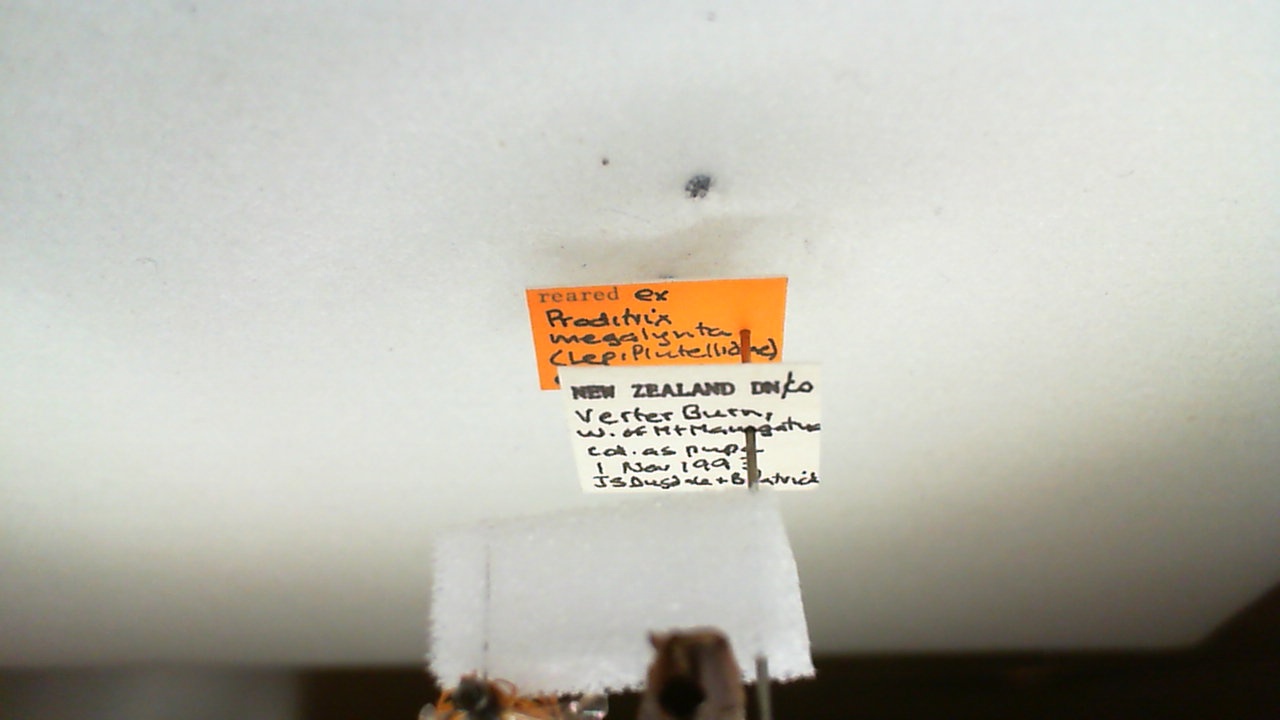 reared ex
Proditrix
megalynta
(Lep:Plutellidae)
NEW ZEALAND DN/CO
Verter Burn,
W. of Mt Maungatua
col. as pupa
1 Nov 199
JS Dugdale + B Patrick